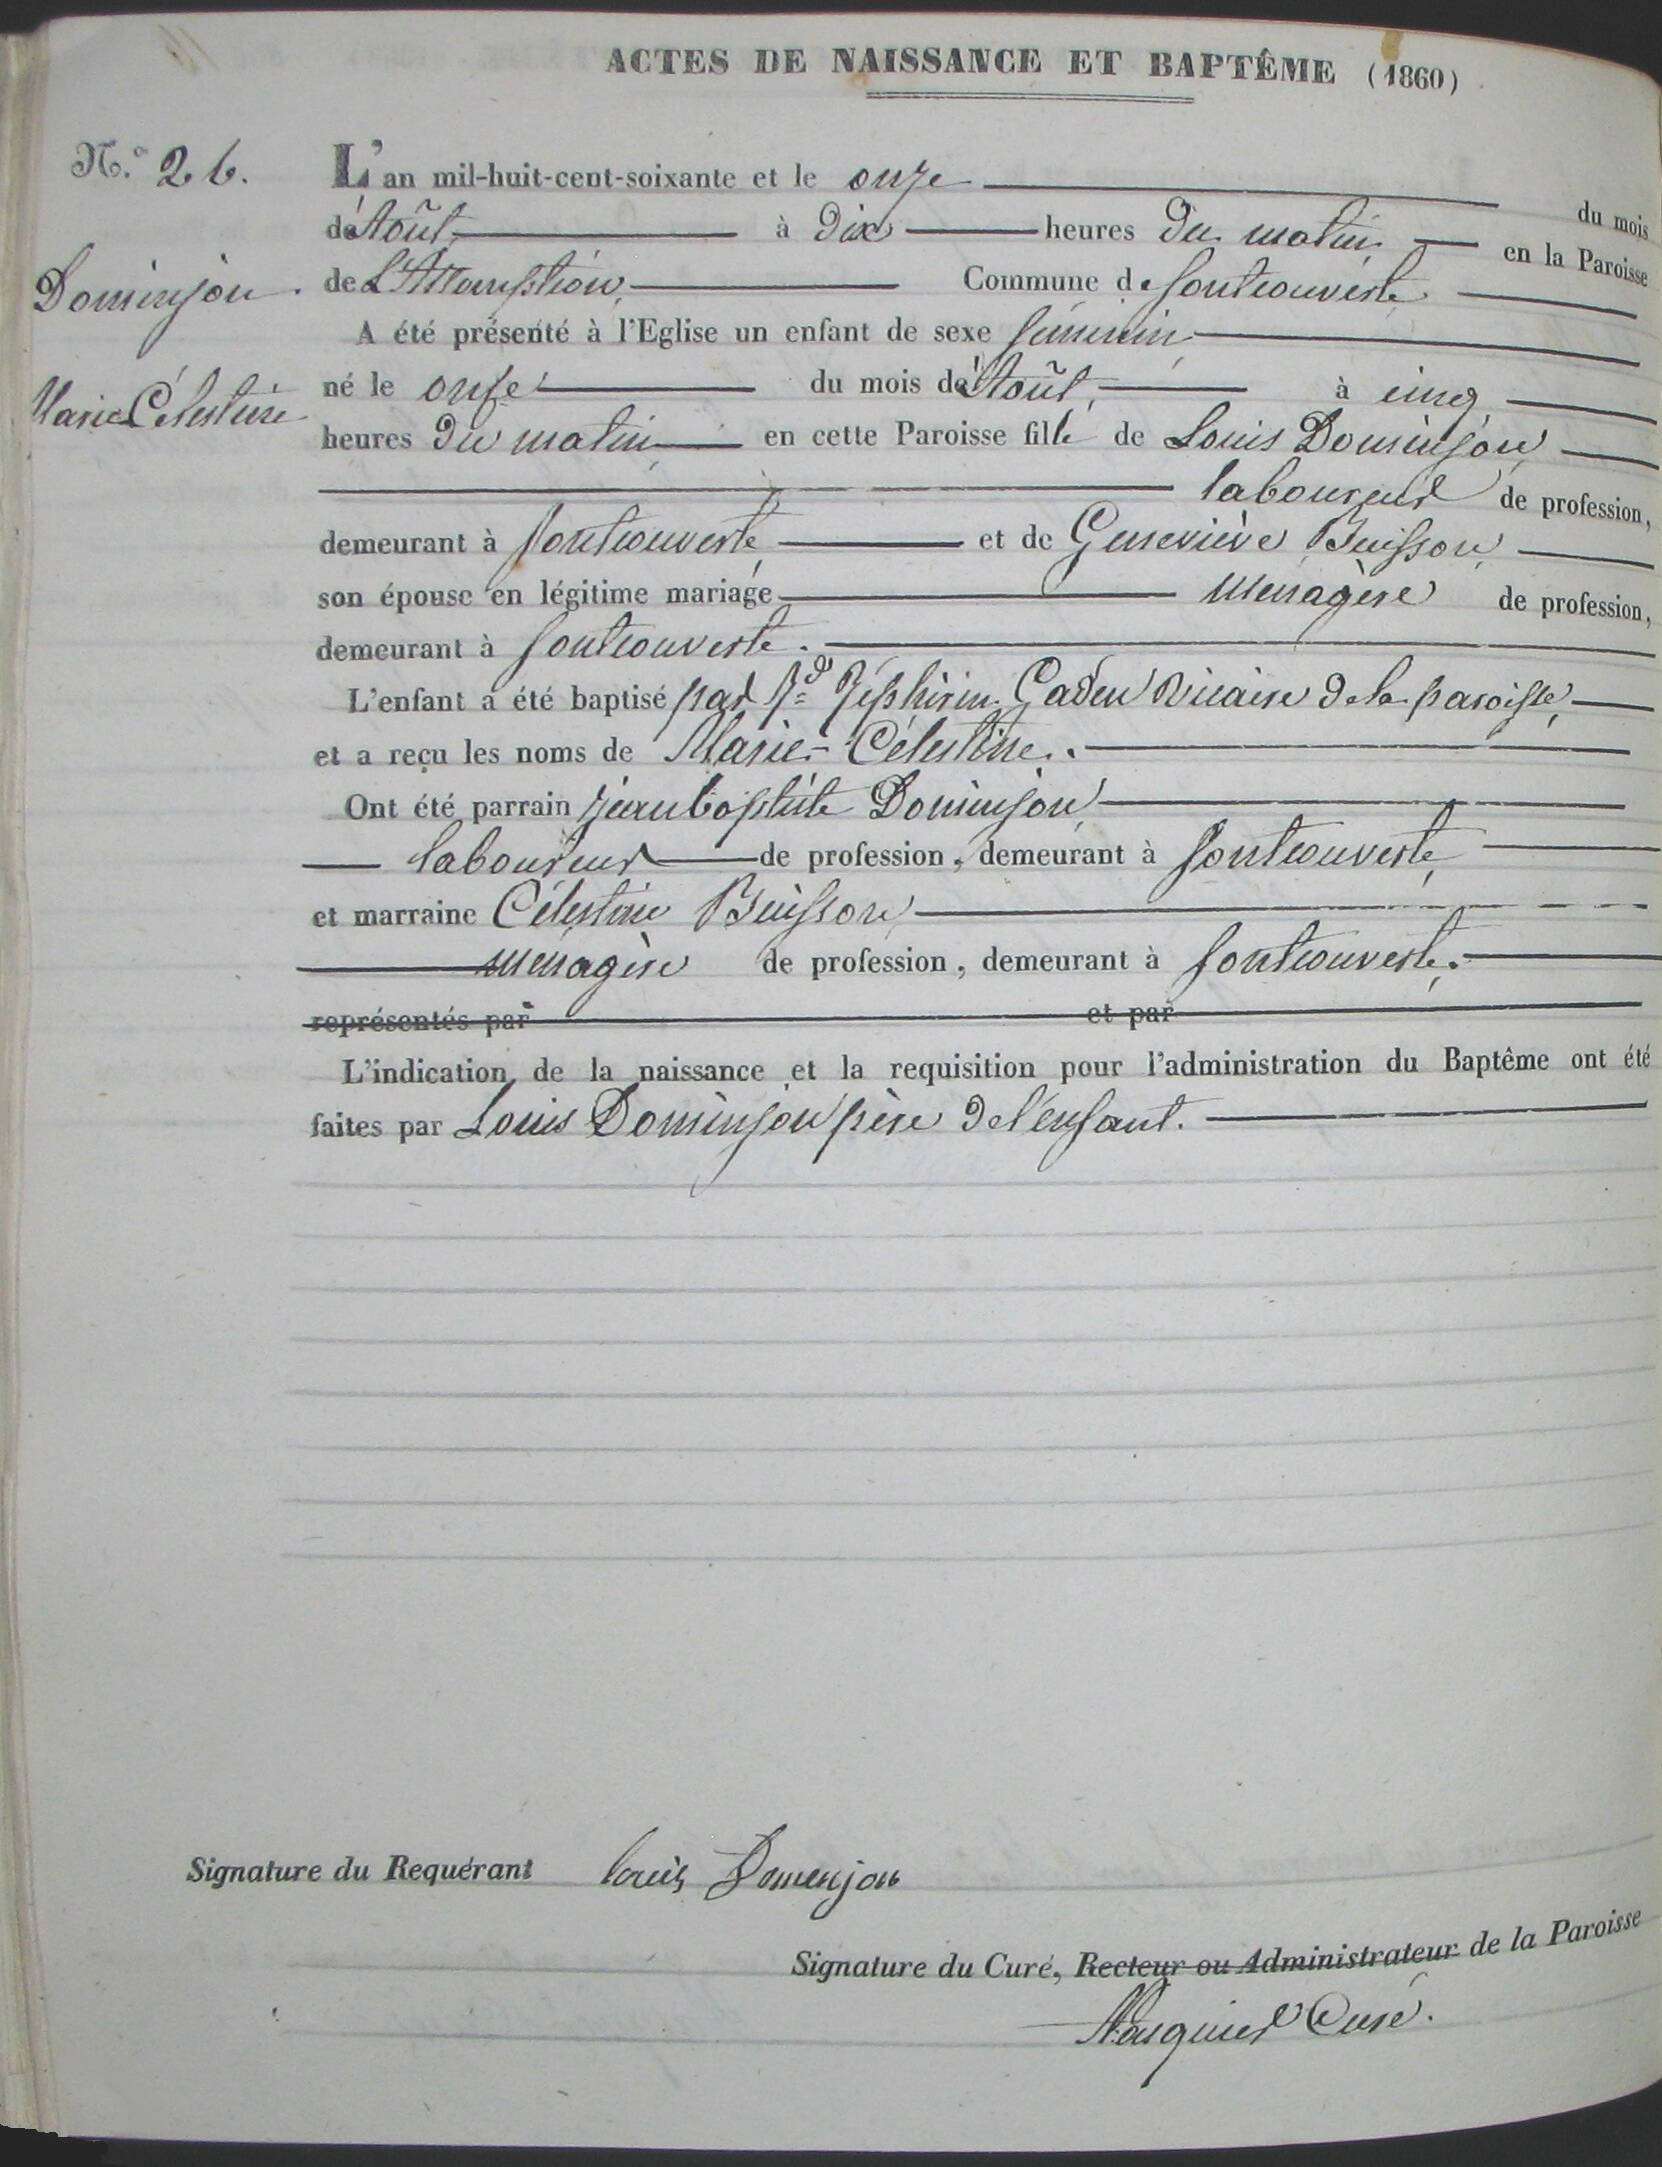 ACTES DE NAISSANCE ET BAPTÊME (1860)
N.º 26.
L'an mil-huit-cent-soixante et le onze du mois
d'Août à dix heures du matin en la Paroisse
Dominjon.
de L'Assomption Commune de Fontcouverte
A été présenté à l'Eglise un enfant de sexe féminin
Marie Célestine
né le onze du mois d'Août à cinq
heures du matin en cette Paroisse fille de Louis Dominjon
laboureur de profession,
demeurant à fontcouverte et de Geneviève Buisson,
son épouse en légitime mariage ménagère de profession,
demeurant à fontcouverte.
L'enfant a été baptisé par Rd Zéphirin Vicaire de la paroisse,
et a reçu les noms de Marie-Célestine.
Ont été parrain jean baptiste Dominjon
laboureur de profession, demeurant à fontcouverte,
et marraine Célestine Buisson
ménagère de profession, demeurant à fontcouverte.
représentés par et par
L'indication de la naissance et la requisition pour l'administration du Baptême ont été
faites par Louis Dominjon père de l'enfant.
Signature du Requérant louis Domenjon
Signature du Curé, Recteur ou Administrateur de la Paroisse
Curé.